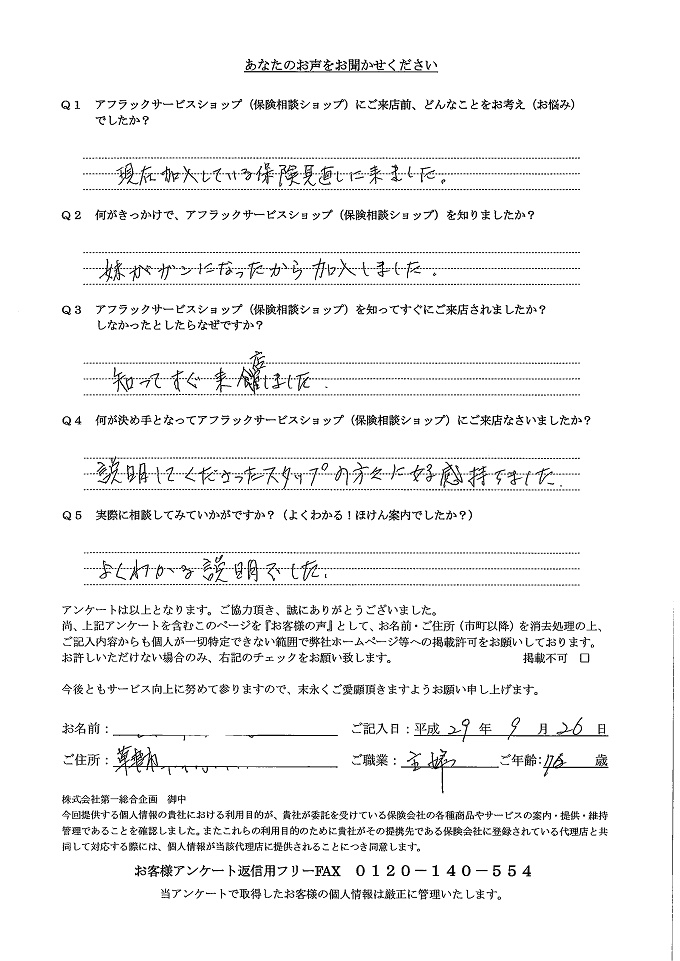 あなたのお声をお聞かせください
Q1 アフラックサービスショップ（保険相談ショップ）にご来店前、どんなことをお考え（お悩み）
でしたか？
現在加入している保険見直しに来ました。
Q2 何がきっかけで、アフラックサービスショップ（保険相談ショップ）を知りましたか？
妹がガンになったから加入しました。
Q3 アフラックサービスショップ（保険相談ショップ）を知ってすぐにご来店されましたか？
しなかったとしたらなぜですか？
店
知ってすぐ来しました.
Q4 何が決め手となってアフラックサービスショップ（保険相談ショップ）にご来店なさいましたか？
説明してくださったスタッフの方々に好感持てました.
Q5 実際に相談してみていかがですか？（よくわかる！ほけん案内でしたか？）
よくわかる説明でした.
アンケートは以上となります。ご協力頂き、誠にありがとうございました。
尚、上記アンケートを含むこのページを『お客様の声』として、お名前・ご住所（市町以降）を消去処理の上、
ご記入内容からも個人が一切特定できない範囲で弊社ホームページ等への掲載許可をお願いしております。
お許しいただけない場合のみ、右記のチェックをお願い致します。 掲載不可 □
今後ともサービス向上に努めて参りますので、末永くご愛顧頂きますようお願い申し上げます。
お名前： ご記入日：平成 29 年 9 月 26 日
ご住所： ご職業：主婦 ご年齢： 歳
株式会社第一総合企画 御中
今回提供する個人情報の貴社における利用目的が、貴社が委託を受けている保険会社の各種商品やサービスの案内・提供・維持
管理であることを確認しました。またこれらの利用目的のために貴社がその提携先である保険会社に登録されている代理店と共
同して対応する際には、個人情報が当該代理店に提供されることにつき同意します。
お客様アンケート返信用フリーFAX ０１２０－１４０－５５４
当アンケートで取得したお客様の個人情報は厳正に管理いたします。